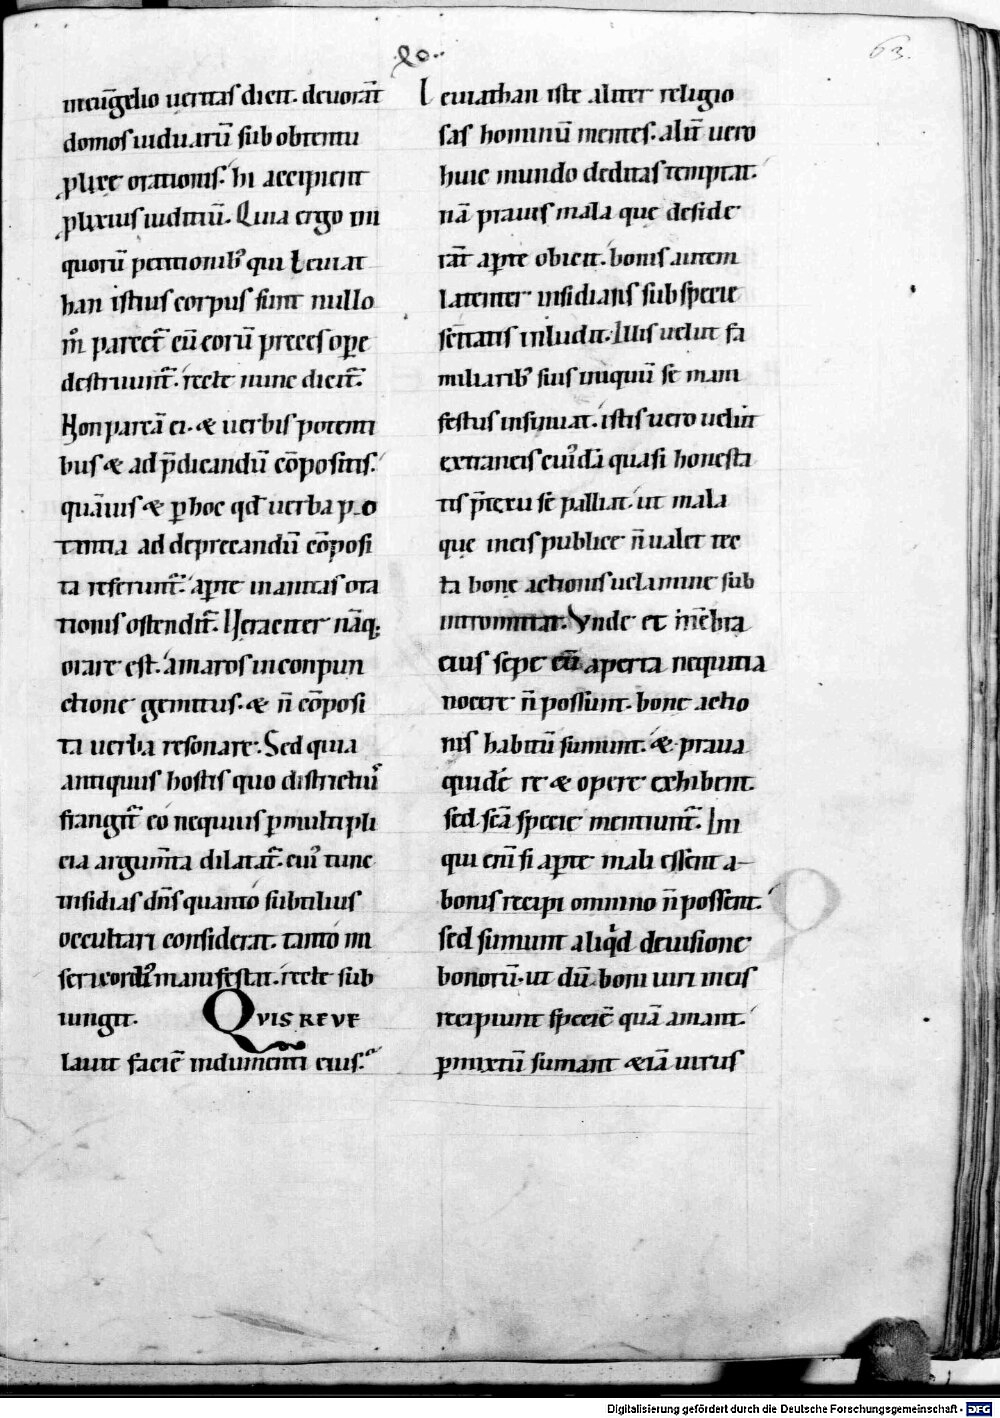 xo..
63.
ineuu̅gelio ueritas dicit. deuora̅t
domos uiduaru̅ sub obtentu
ꝓlixe orationis. hi accipient
ꝓlixius iudiciu̅. Quia ergo im
quoru̅ petitionib; qui Leuiat
han istius corpus sunt nullo
m̊ parcet̅ cu̅ eoru̅ preces oꝑe
destruunt̅. recte nunc dicit̅.
Non parca̅ ei. & uerbis potenti
bus & ad p̅dicandu̅ co̅positis.
qua̅uis & ꝑ hoc qđ uerba po
tentia ad deprecandu̅ co̅posi
ta referunt̅. aꝑte inanitas ora
tionis ostendit̅. Veraciter na̅q;
orare est. amaros in conpun
ctione gemitus. & n̅ co̅posi
ta uerba resonare. Sed quia
antiquus hostis quo districtiu᷒
frangit̅ eo nequius ꝑ multipli
cia argum̅ta dilatat̅. cui᷒ tunc
insidias dn̅s quanto subtilius
occultari considerat. tanto mi
sericordi᷒ manifestat. recte sub
iungit. QVIS REVE
lauit facie̅ indumenti eius.
Leuiathan iste aliter religio
sas hominu̅ mentes. alit̅ uero
huic mundo deditas temptat.
na̅ prauis mala que deside
ra̅t aꝑte obicit. bonis autem
latenter insidians sub specie
sc̅itatis inludit. Illis uelut fa
miliarib; suis iniquu̅ se mani
festius insinuat. istis uero uelut
extraneis cui᷒da̅ quasi honesta
tis p̅textu se palliat. ut mala
que in eis publice n̅ ualet tec
ta bone actionis uelamine sub
intromittat. Vnde et me̅bra
eius sepe cu̅ aperta nequitia
nocere n̅ possunt. bone actio
nis habitu̅ sumunt. & praua
quide̅ re & opere exhibent.
sed sca̅ specie mentiunt̅. Im
qui eni̅ si aꝑte mali essent a
bonis recipi omnino n̅ possent.
sed sumunt aliqđ de uisione
bonoru̅. ut du̅ boni uiri in eis
recipiunt specie̅ qua̅ amant.
ꝑmixtu̅ sumant &ia̅ uirus
Digitalisierung gefördert durch die Deutsche Forschungsgemeinschaft - DFG